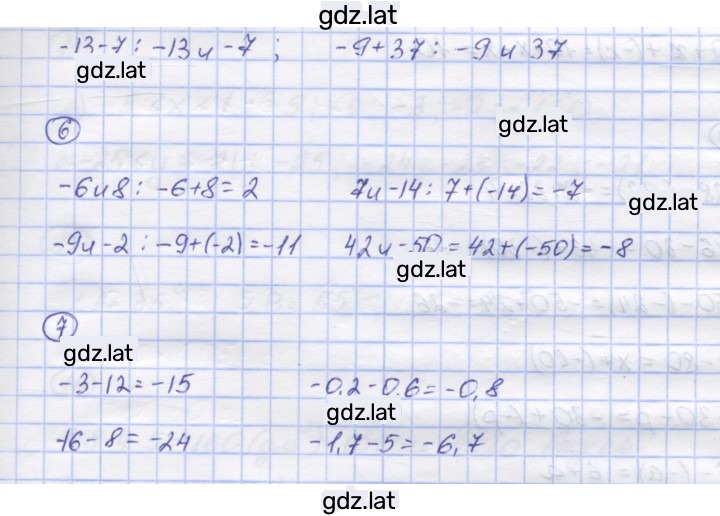 gdz.lat
-13-7: -13 и -7 ; -9+37: -9 и 37
gdz.lat
gdz.lat
6
-6 и 8: -6+8=2 7 и -14: 7+(-14)=-7
gdz.lat
-9 и -2: -9+(-2)=-11 42 и -50=42+(-50)=-8
gdz.lat
7
gdz.lat
-3-12=-15 -0.2-0.6=-0,8
gdz.lat
-16-8=-24 -1,7-5=-6,7
gdz.lat